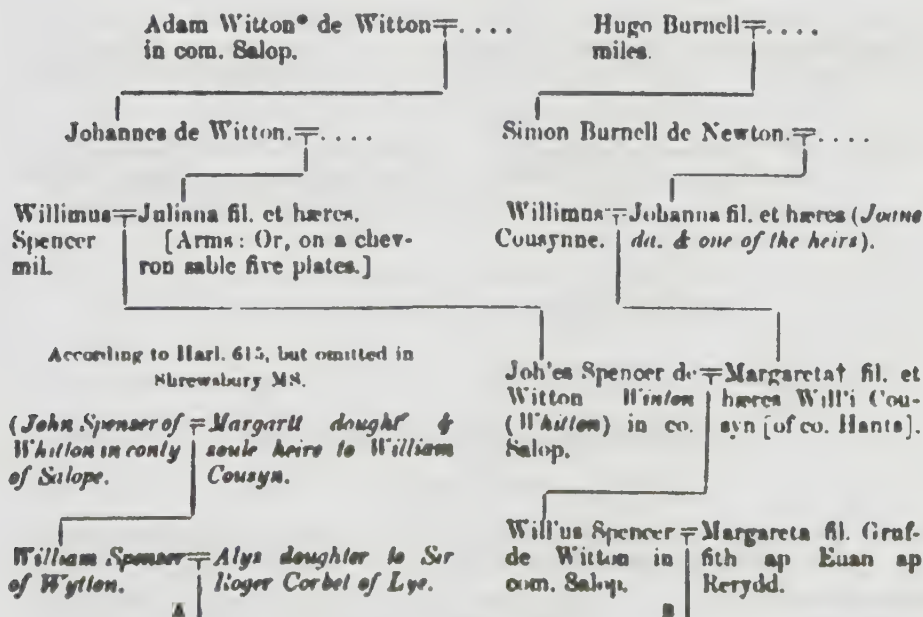 Adam Witton* de Witton=....
in com. Salop.
Hugo Burnell=....
miles.
Johannes de Witton.=....
Simon Burnell de Newton.=....
Willimus=Juliana fil. et hæres.
Spencer
mil.
[Arms: Or, on a chev-
ron sable five plates.]
Willimus=Johanna fil. et hæres (Joane
Cousynne. da. & one of the heirs).
According to Harl. 615, but omitted in
Shrewsbury MS.
(John Spenser of
Whitton in conty
of Salope.
=Margartt dought' &
soule heire to William
Cousyn.
Joh'es Spencer de
Witton Winton
(Whitton) in co.
Salop.
=Margareta† fil. et
hæres Will'i Cou-
syn [of co. Hants].
William Spenser
of Wytton.
=Alys doughter to Sir
Roger Corbet of Lye.
Will'us Spencer
de Witton in
com. Salop.
=Margareta fil. Gruf-
fith ap Euan ap
Rerydd.
A
B